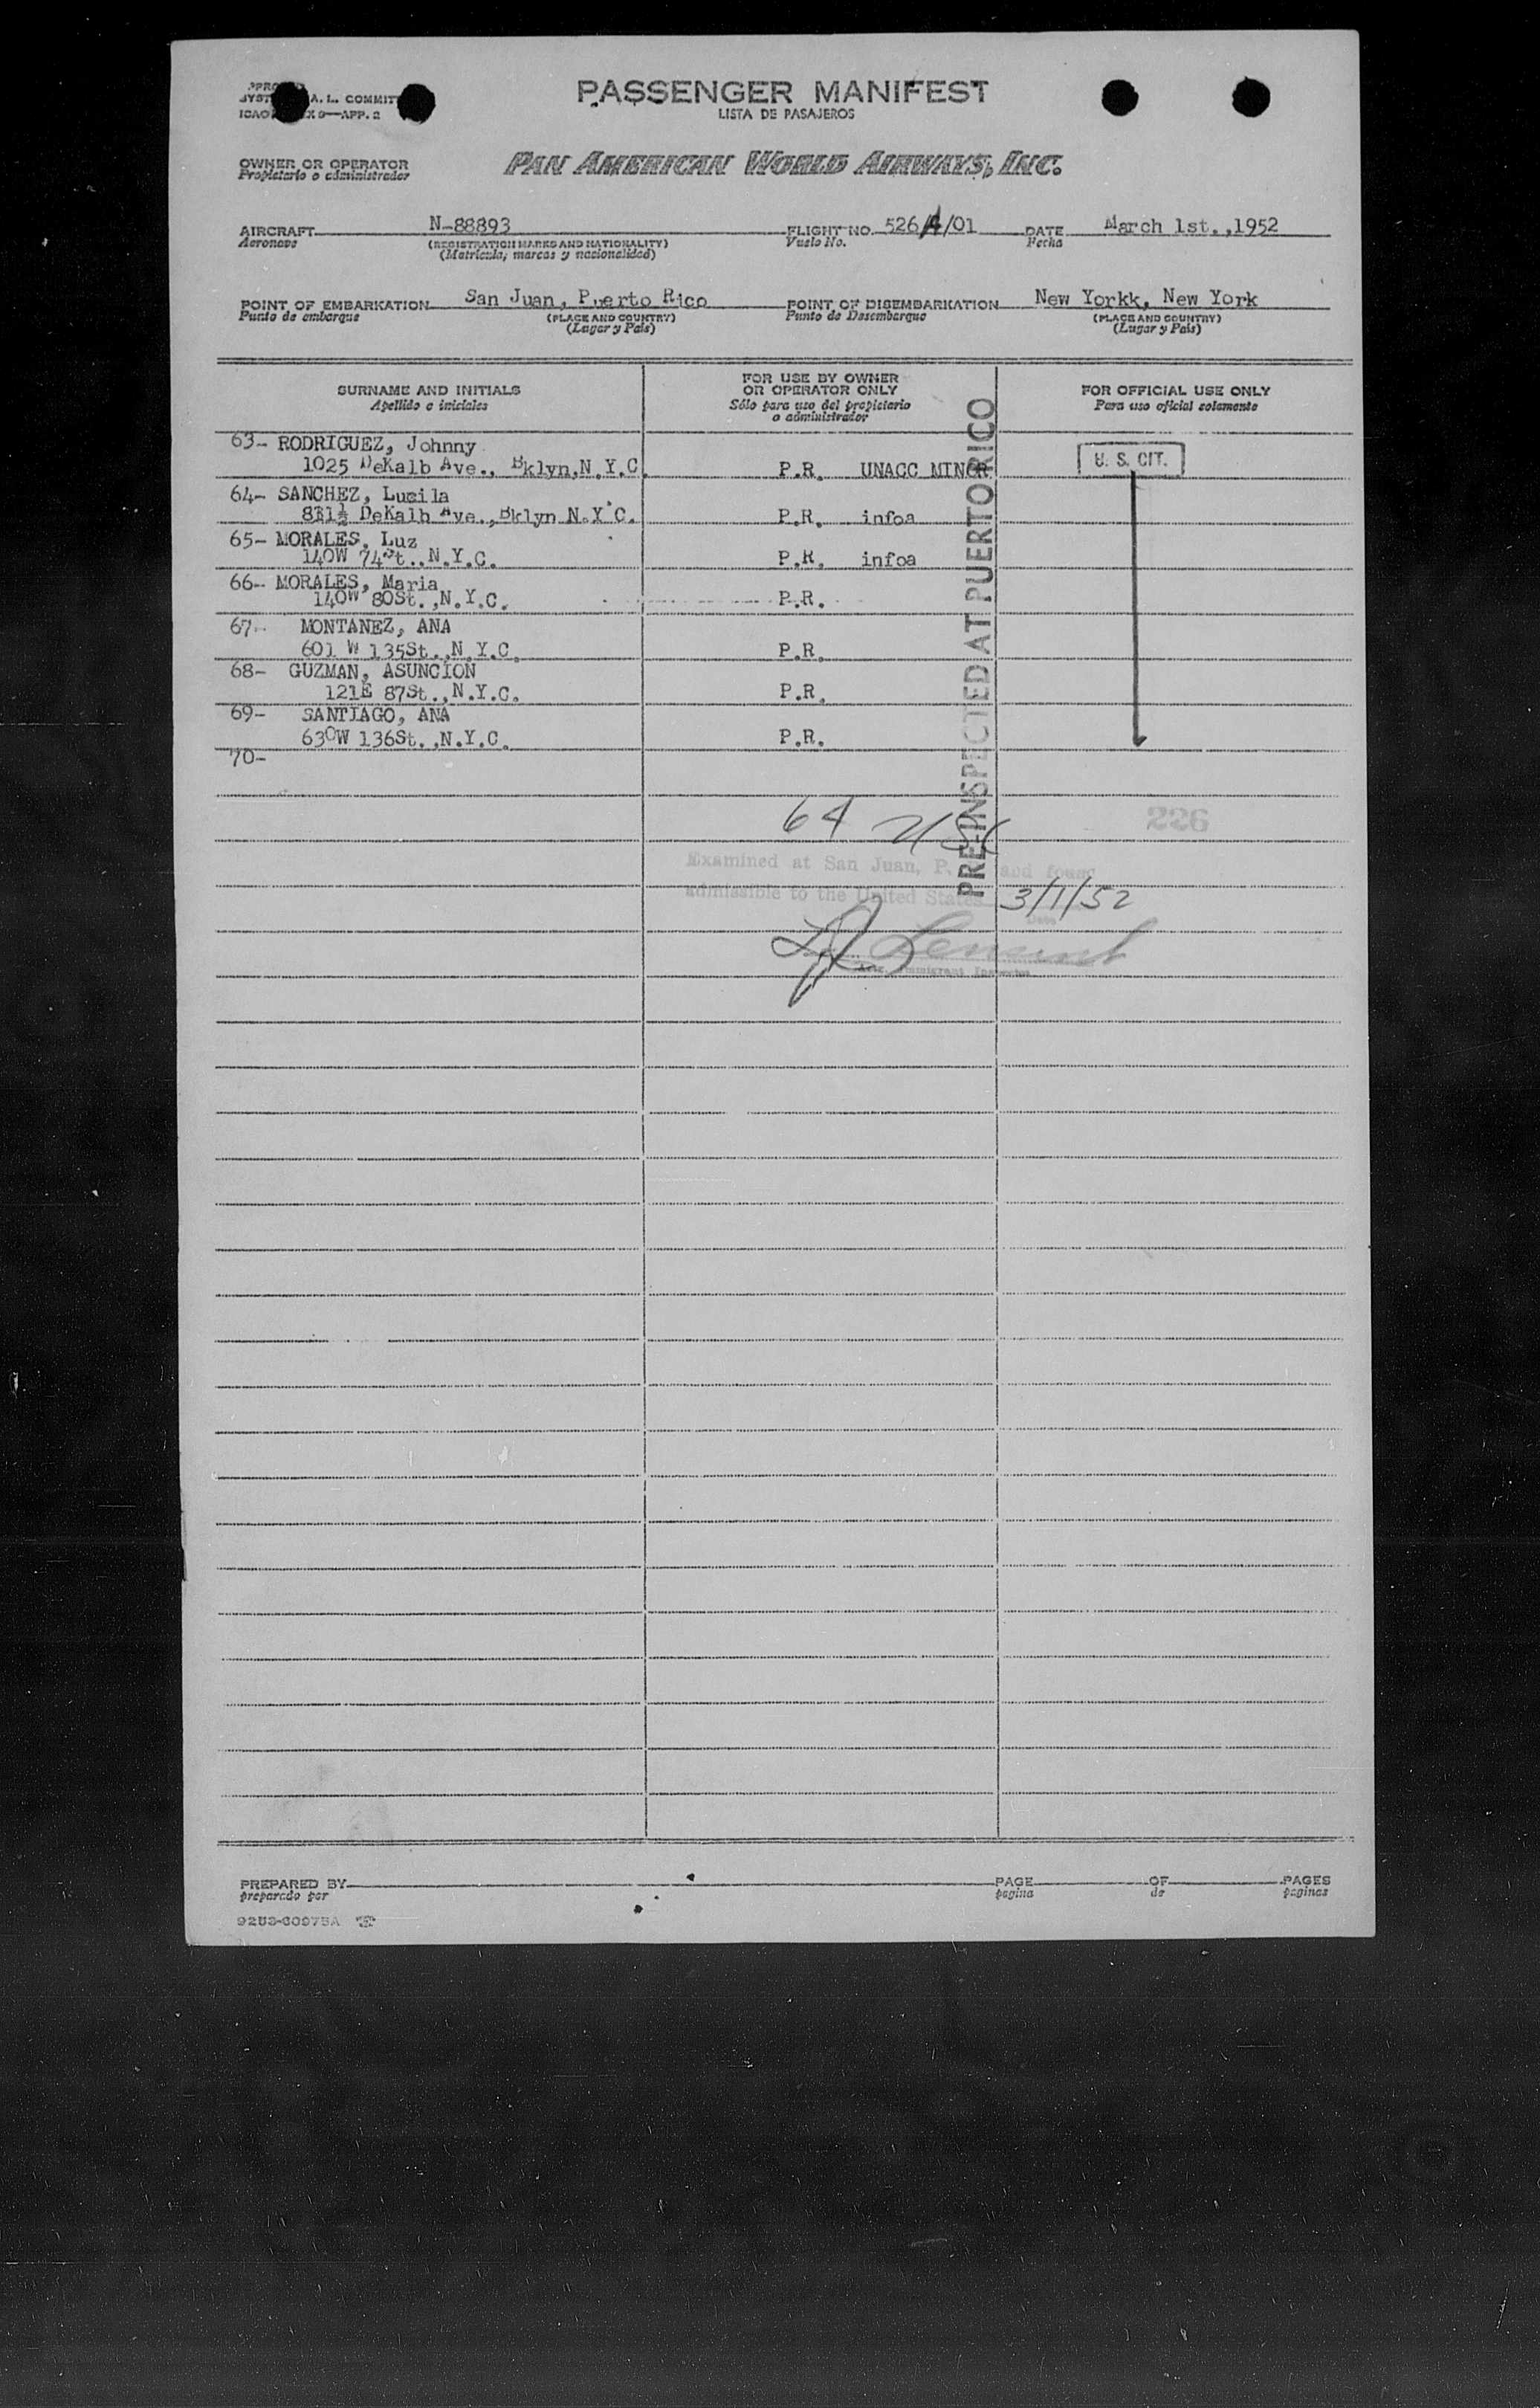 PASSENGER MANIFEST
LISTA DE PASAJEROS
A. L. COMMIT
ICAO X 9—APP. 2
OWNER OR OPERATOR
Propietario o administrador
PAN AMERICAN WORLD AIRWAYS, INC.
AIRCRAFT N-88893 FLIGHT NO. 526/A/01 DATE March 1st.,1952
Aeronave (REGISTRATION MARKS AND NATIONALITY) Vuelo No. Fecha
(Matricula, marcas y nacionalidad)
POINT OF EMBARKATION San Juan, Puerto Rico POINT OF DISEMBARKATION New Yorkk, New York
Punto de embarque (PLACE AND COUNTRY) Punto de Desembarque (PLACE AND COUNTRY)
(Lugar y País) (Lugar y País)
SURNAME AND INITIALS
Apellido e iniciales
FOR USE BY OWNER
OR OPERATOR ONLY
Sólo para uso del propietario
o administrador
FOR OFFICIAL USE ONLY
Para uso oficial solamente
63- RODRIGUEZ, Johnny
1025 DeKalb Ave., Bklyn,N.Y.C. P.R. UNACC MINOR U. S. CIT.
64- SANCHEZ, Lucila
831½ DeKalb Ave.,Bklyn N.Y.C. P.R. infoa
65- MORALES, Luz
140W 74St.,N.Y.C. P.R. infoa
66- MORALES, Maria
140W 80St.,N.Y.C. P.R.
67- MONTANEZ, ANA
601 W 135St.,N.Y.C. P.R.
68- GUZMAN, ASUNCION
121E 87St.,N.Y.C. P.R.
69- SANTIAGO, ANA
630W 136St.,N.Y.C. P.R.
70-
PRE-INSPECTED AT PUERTO RICO
64
226
Examined at San Juan, P. and found
admissible to the United States 3/1/52
Date
Immigrant Inspector
PREPARED BY PAGE OF PAGES
preparado por pagina de paginas